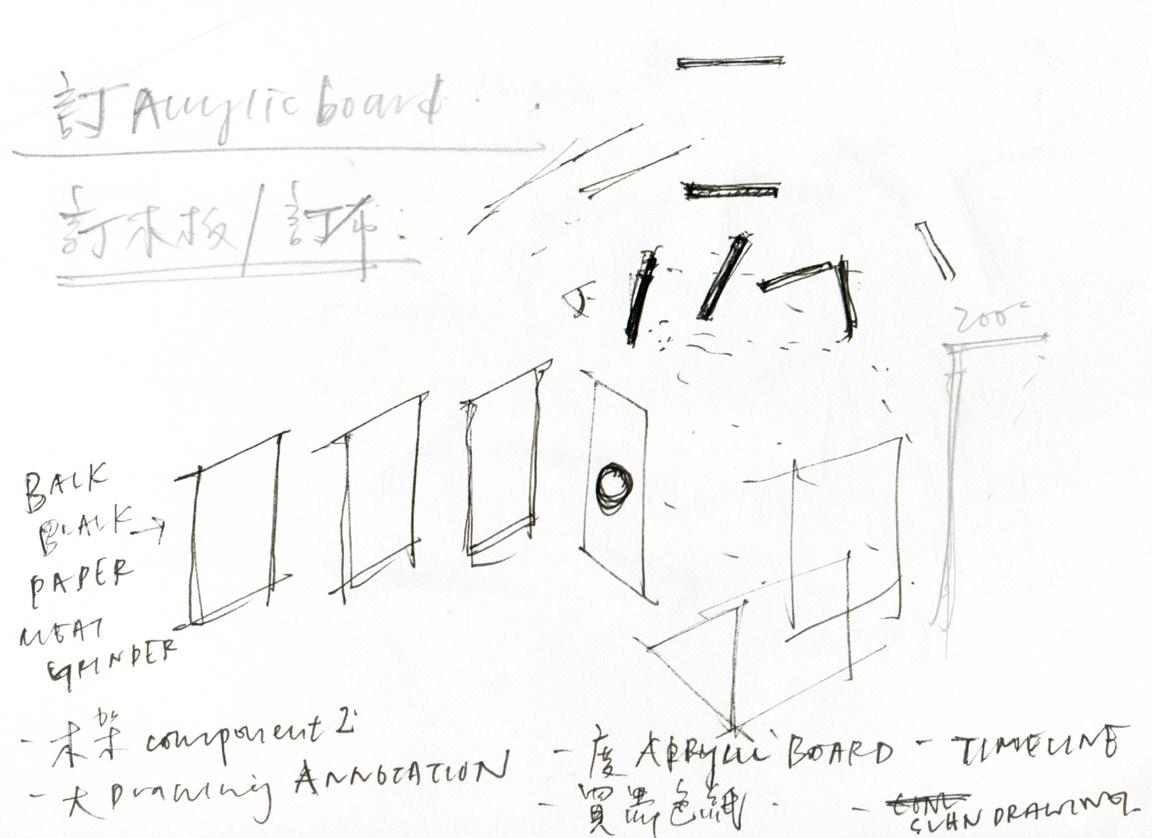 訂 Acrylic board
訂木板/訂布:
200
BALK
BLACK →
PAPER
MEAT
GRINDER
- 木架 component 2
- 大 Drawing ANNOTATION
- 度 ACRYLIC BOARD
- 買黑色紙
- TIMELINE
- SCAN DRAWING